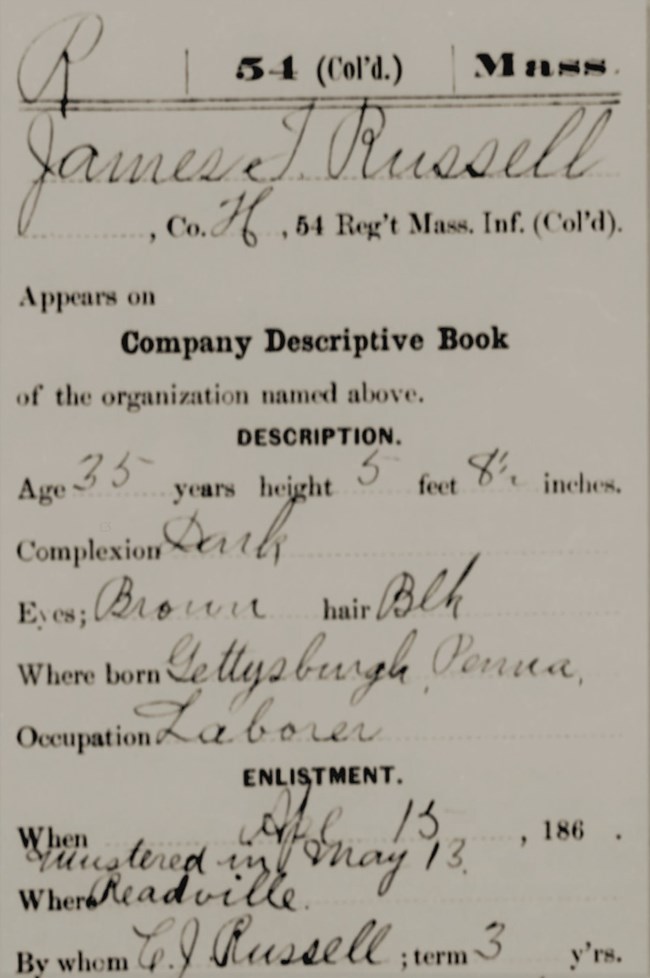 R 54 (Col'd.) Mass.
James T. Russell
, Co. H , 54 Reg't Mass. Inf. (Col'd).
Appears on
Company Descriptive Book
of the organization named above.
DESCRIPTION.
Age 35 years height 5 feet 8½ inches.
Complexion Dark
Eyes; Brown hair Blk
Where born Gettysburgh, Penna,
Occupation Laborer
ENLISTMENT.
When Apl 15 , 186 .
Mustered in May 13.
Where Readville.
By whom C. J. Russell ; term 3 y'rs.